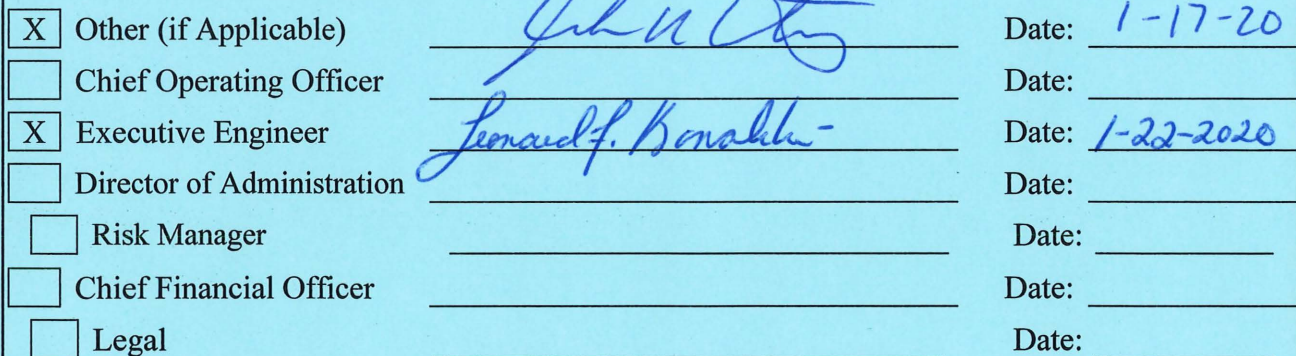 X Other (if Applicable) Date: 1-17-20
Chief Operating Officer Date:
X Executive Engineer Leonard F. Date: 1-22-2020
Director of Administration Date:
Risk Manager Date:
Chief Financial Officer Date:
Legal Date: